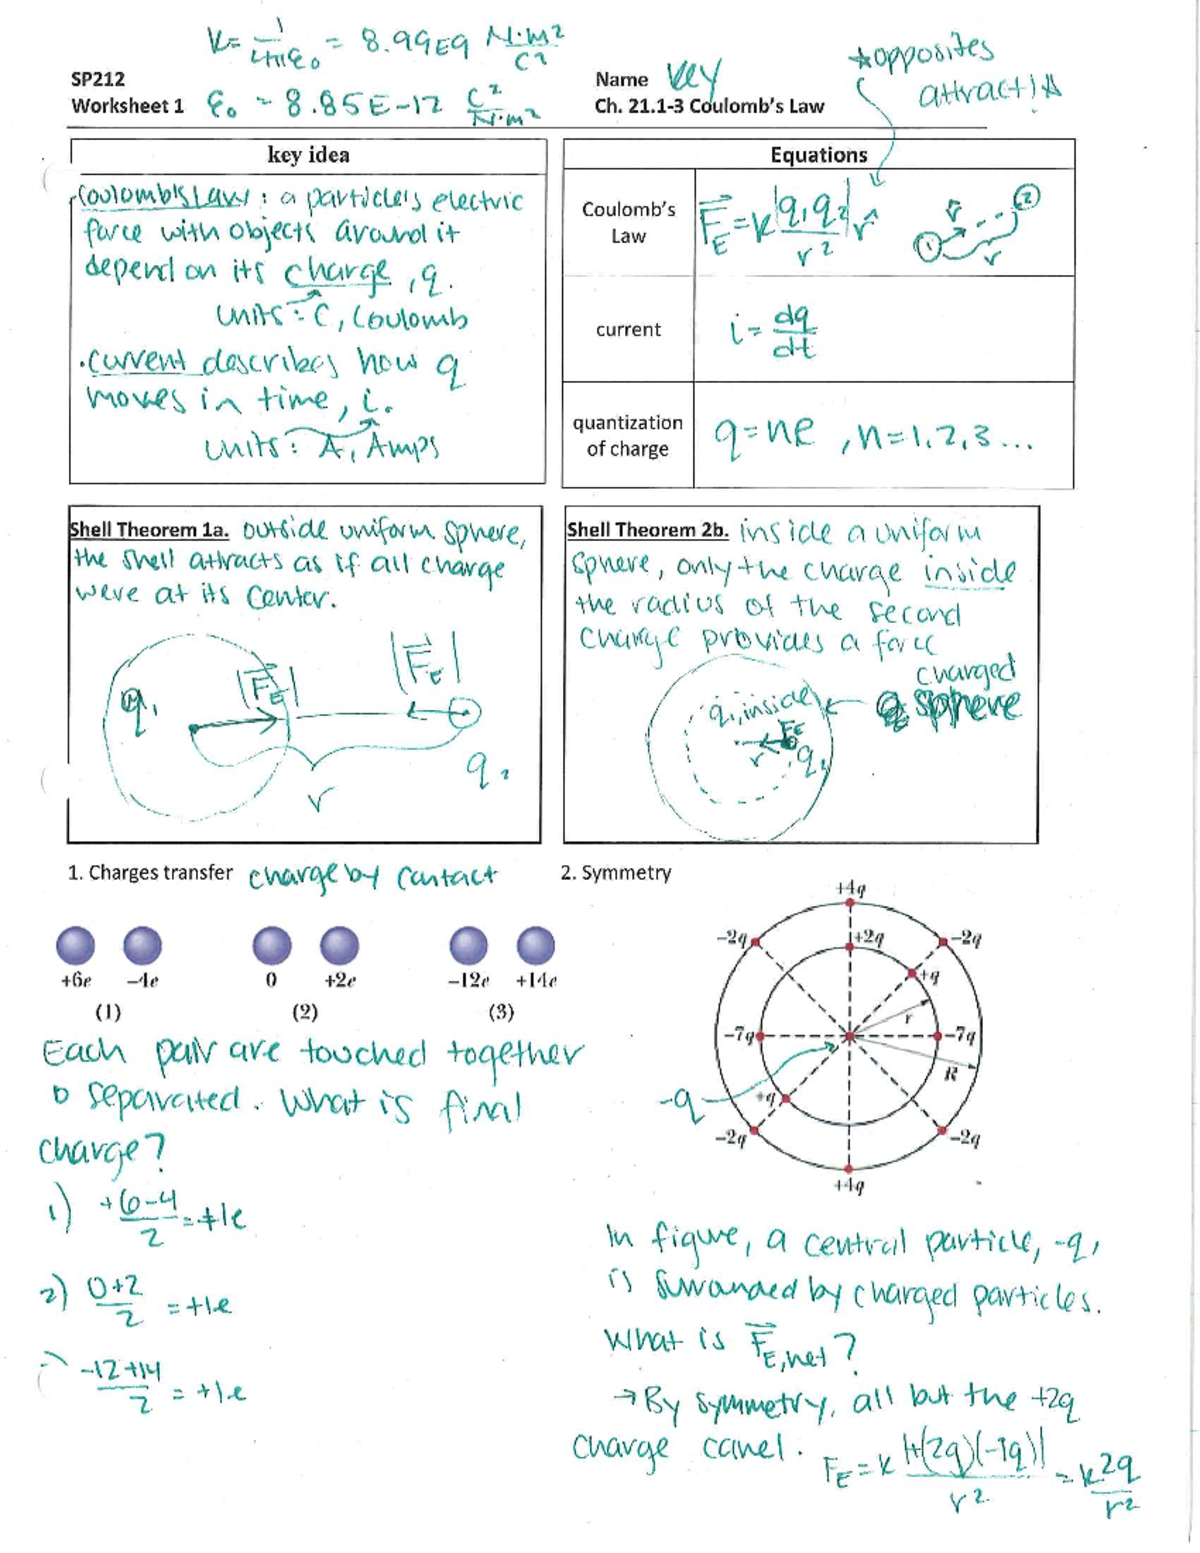 K = 1/4πε₀ = 8.99E9 N·m²/C²
*opposites attract!*
SP212
Name Key
Worksheet 1 ε₀ = 8.85E-12 C²/N·m²
Ch. 21.1-3 Coulomb's Law
key idea
Coulomb's Law: a particle's electric
force with objects around it
depend on its charge, q.
units: C, Coulomb
·current describes how q
moves in time, i.
units: A, Amps
Equations
Coulomb's
Law
F⃗E = k |q₁q₂|/r² r̂
r̂
1
2
r
current
i = dq/dt
quantization
of charge
q = ne , n = 1, 2, 3 ...
Shell Theorem 1a. outside uniform sphere,
the shell attracts as if all charge
were at its center.
q₁
|F⃗E|
|F⃗E|
q₂
r
Shell Theorem 2b. inside a uniform
sphere, only the charge inside
the radius of the second
charge provides a force
charged
sphere
q₁,inside
FE
r
q₂
1. Charges transfer charge by contact
+6e -4e
0 +2e
-12e +14e
(1)
(2)
(3)
Each pair are touched together
& separated. What is final
charge?
1) +6-4/2 = +1e
2) 0+2/2 = +1e
-12+14/2 = +1e
2. Symmetry
+4q
-2q
+2q
-2q
+q
r
-7q
-7q
R
-q
+q
-2q
-2q
+4q
In figure, a central particle, -q,
is surrounded by charged particles.
What is F⃗E,net?
→ By symmetry, all but the +2q
charge cancel. FE = k |+(2q)(-1q)|/r² = k 2q/r²